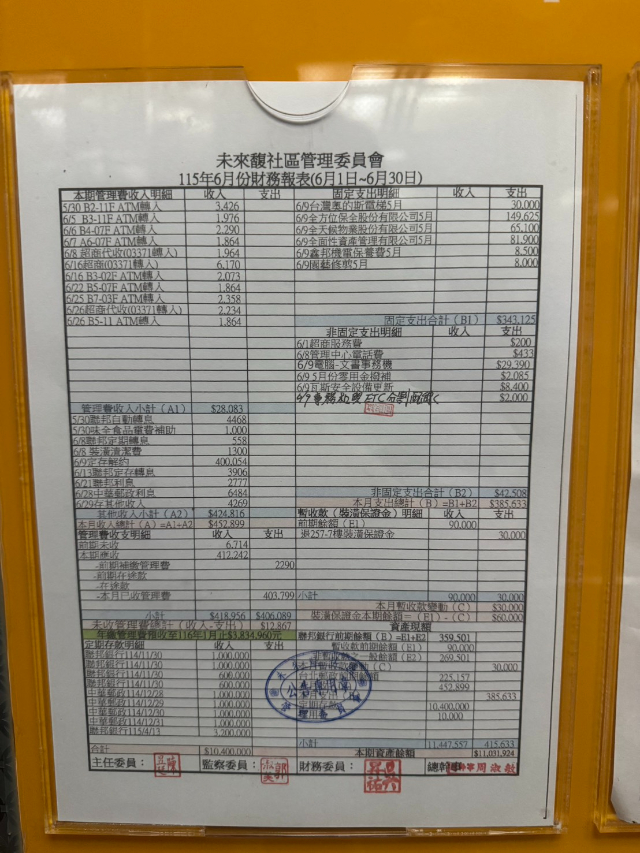 未來馥社區管理委員會
115年6月份財務報表(6月1日~6月30日)
本期管理費收入明細 收入 支出 固定支出明細 收入 支出
5/30 B2-11F ATM轉入 3,426 6/9台灣奧的斯電梯5月 30,000
6/5 B3-11F ATM轉入 1,976 6/9全方位保全股份有限公司5月 149,625
6/6 B4-07F ATM轉入 2,290 6/9全天候物業股份有限公司5月 65,100
6/7 A6-07F ATM轉入 1,864 6/9全面性資產管理有限公司5月 81,900
6/8 超商代收(03371轉入) 1,964 6/9鑫邦機電保養費5月 8,500
6/16超商(03371轉入) 6,170 6/9園藝修剪5月 8,000
6/16 B3-02F ATM轉入 2,073
6/22 B5-07F ATM轉入 1,864
6/25 B7-03F ATM轉入 2,358
6/26超商代收(03371轉入) 2,234
6/26 B5-11 ATM轉入 1,864 固定支出合計(B1) $343,125
非固定支出明細 收入 支出
6/1超商服務費 $200
6/8管理中心電話費 $433
6/9電腦-文書事務機 $29,390
6/9 5月份零用金撥補 $2,085
6/9瓦斯安全設備更新 $8,400
$2,000
管理費收入小計(A1) $28,083
5/30聯邦自動轉息 4468
5/30味全食品電費補助 1,000
6/8聯邦定期轉息 558
6/8 裝潢清潔費 1300
6/9定存解約 400,054
6/13聯邦定存轉息 3906
6/21聯邦利息 2777
6/28中華郵政利息 6484 非固定支出合計(B2) $42,508
6/29在其他收入 4269 本月支出總計(B)=B1+B2 $385,633
其他收入小計(A2) $424,816 暫收款(裝潢保證金)明細 收入 支出
本月收入總計(A)=A1+A2 $452,899 前期餘額(E1) 90,000
管理費收支明細 收入 支出 退257-7樓裝潢保證金 30,000
前期未收 6,714
本期應收 412,242
-前期補繳管理費 2290
-前期在途款
-在途款
-本月已收管理費 403,799 小計 90,000 30,000
本月暫收款變動(C) $30,000
小計 $418,956 $406,089 裝潢保證金本期餘額=(E1)-(C) $60,000
未收管理費總計(收入-支出) $12,867 資產現額
年繳管理費預收至116年1月止$3,834,960元 聯邦銀行前期餘額(B)=E1+E2 359,501
定期存款明細 收入 支出 暫收款前期餘額(E1) 90,000
聯邦銀行114/11/30 1,000,000 269,501
聯邦銀行114/11/30 1,000,000 30,000
聯邦銀行114/11/30 600,000 225,157
聯邦銀行114/11/30 600,000 452,899
中華郵政114/12/28 1,000,000 385,633
中華郵政114/12/29 1,000,000 10,400,000
中華郵政114/12/30 1,000,000 10,000
中華郵政114/12/31 1,000,000
聯邦銀行115/4/13 3,200,000
小計 11,447,557 415,633
合計 $10,400,000 本期資產餘額 $11,031,924
主任委員: 監察委員: 財務委員: 總幹事 周淑敏